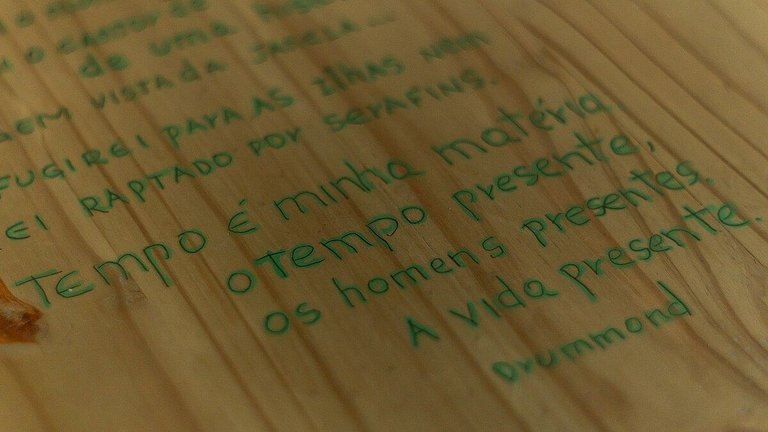 O CANTOR DE
de uma
GEM VISTA DA JANELA...
FUGIREI PARA AS ILHAS NEM
EI RAPTADO POR SERAFINS.
TEMPO É minha matéria,
o Tempo presente,
os homens presentes.
A vida presente.
Drummond